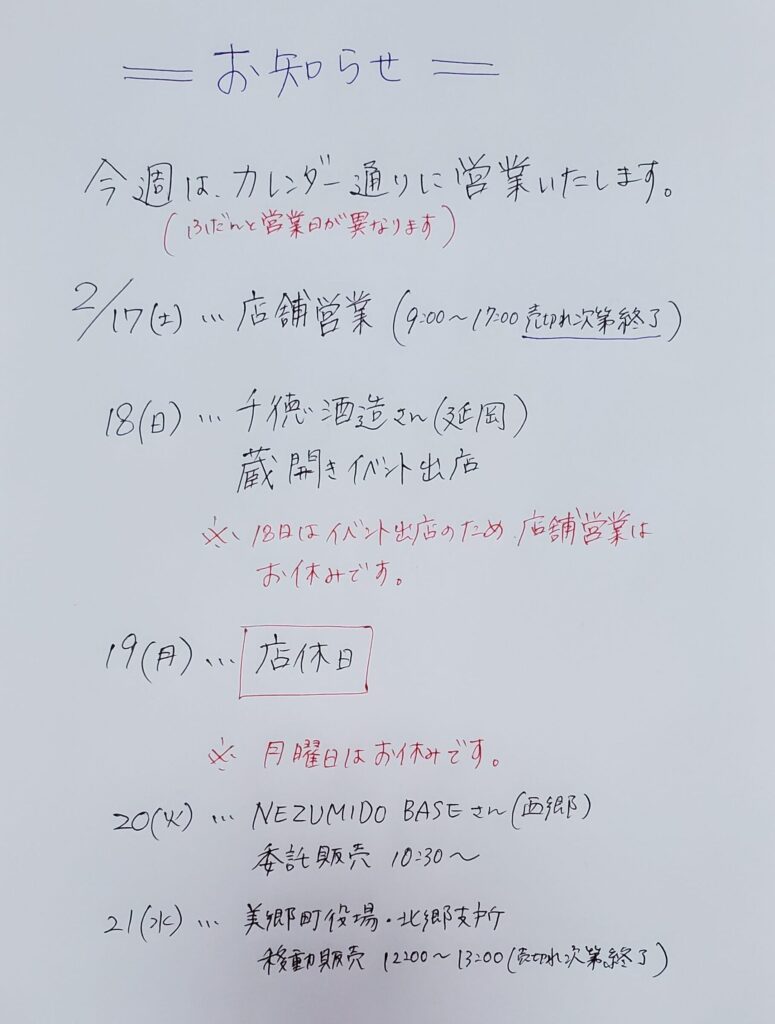 ＝お知らせ＝
今週は、カレンダー通りに営業いたします。
(ふだんと営業日が異なります)
2/17(土)…店舗営業(9:00～17:00売切れ次第終了)
18(日)…千徳酒造さん(延岡)
蔵開きイベント出店
※18日はイベント出店のため、店舗営業は
お休みです。
19(月)…店休日
※月曜日はお休みです。
20(火)…NEZUMIDO BASEさん(西郷)
委託販売 10:30～
21(水)…美郷町役場・北郷支所
移動販売 12:00～13:00(売切れ次第終了)